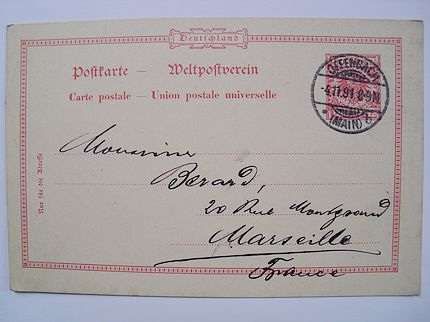 Deutschland
Postkarte — Weltpostverein
Carte postale — Union postale universelle
OFFENBACH
-4.11.91 8-9N
(MAIN)
Nur für die Adresse
Monsieur
Berard,
20 Rue Montgrand
Marseille
France